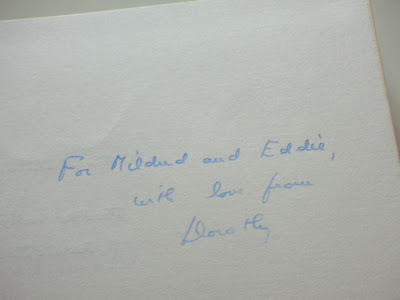 For Mildred and Eddie,
with love from
Dorothy